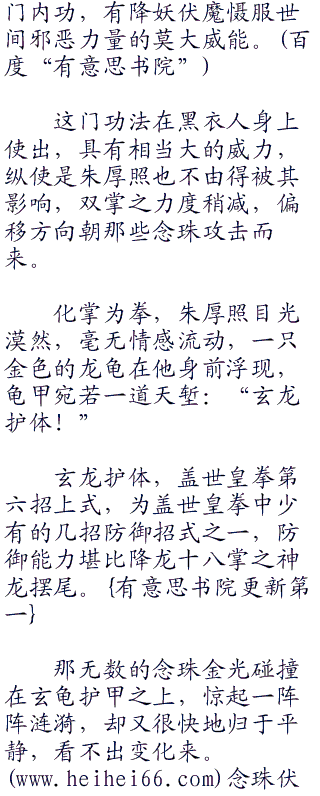 门内功，有降妖伏魔慑服世
间邪恶力量的莫大威能。(百
度“有意思书院”)
这门功法在黑衣人身上
使出，具有相当大的威力，
纵使是朱厚照也不由得被其
影响，双掌之力度稍减，偏
移方向朝那些念珠攻击而
来。
化掌为拳，朱厚照目光
漠然，毫无情感流动，一只
金色的龙龟在他身前浮现，
龟甲宛若一道天堑：“玄龙
护体！”
玄龙护体，盖世皇拳第
六招上式，为盖世皇拳中少
有的几招防御招式之一，防
御能力堪比降龙十八掌之神
龙摆尾。{有意思书院更新第
一}
那无数的念珠金光碰撞
在玄龟护甲之上，惊起一阵
阵涟漪，却又很快地归于平
静，看不出变化来。
(www.heihei66.com)念珠伏